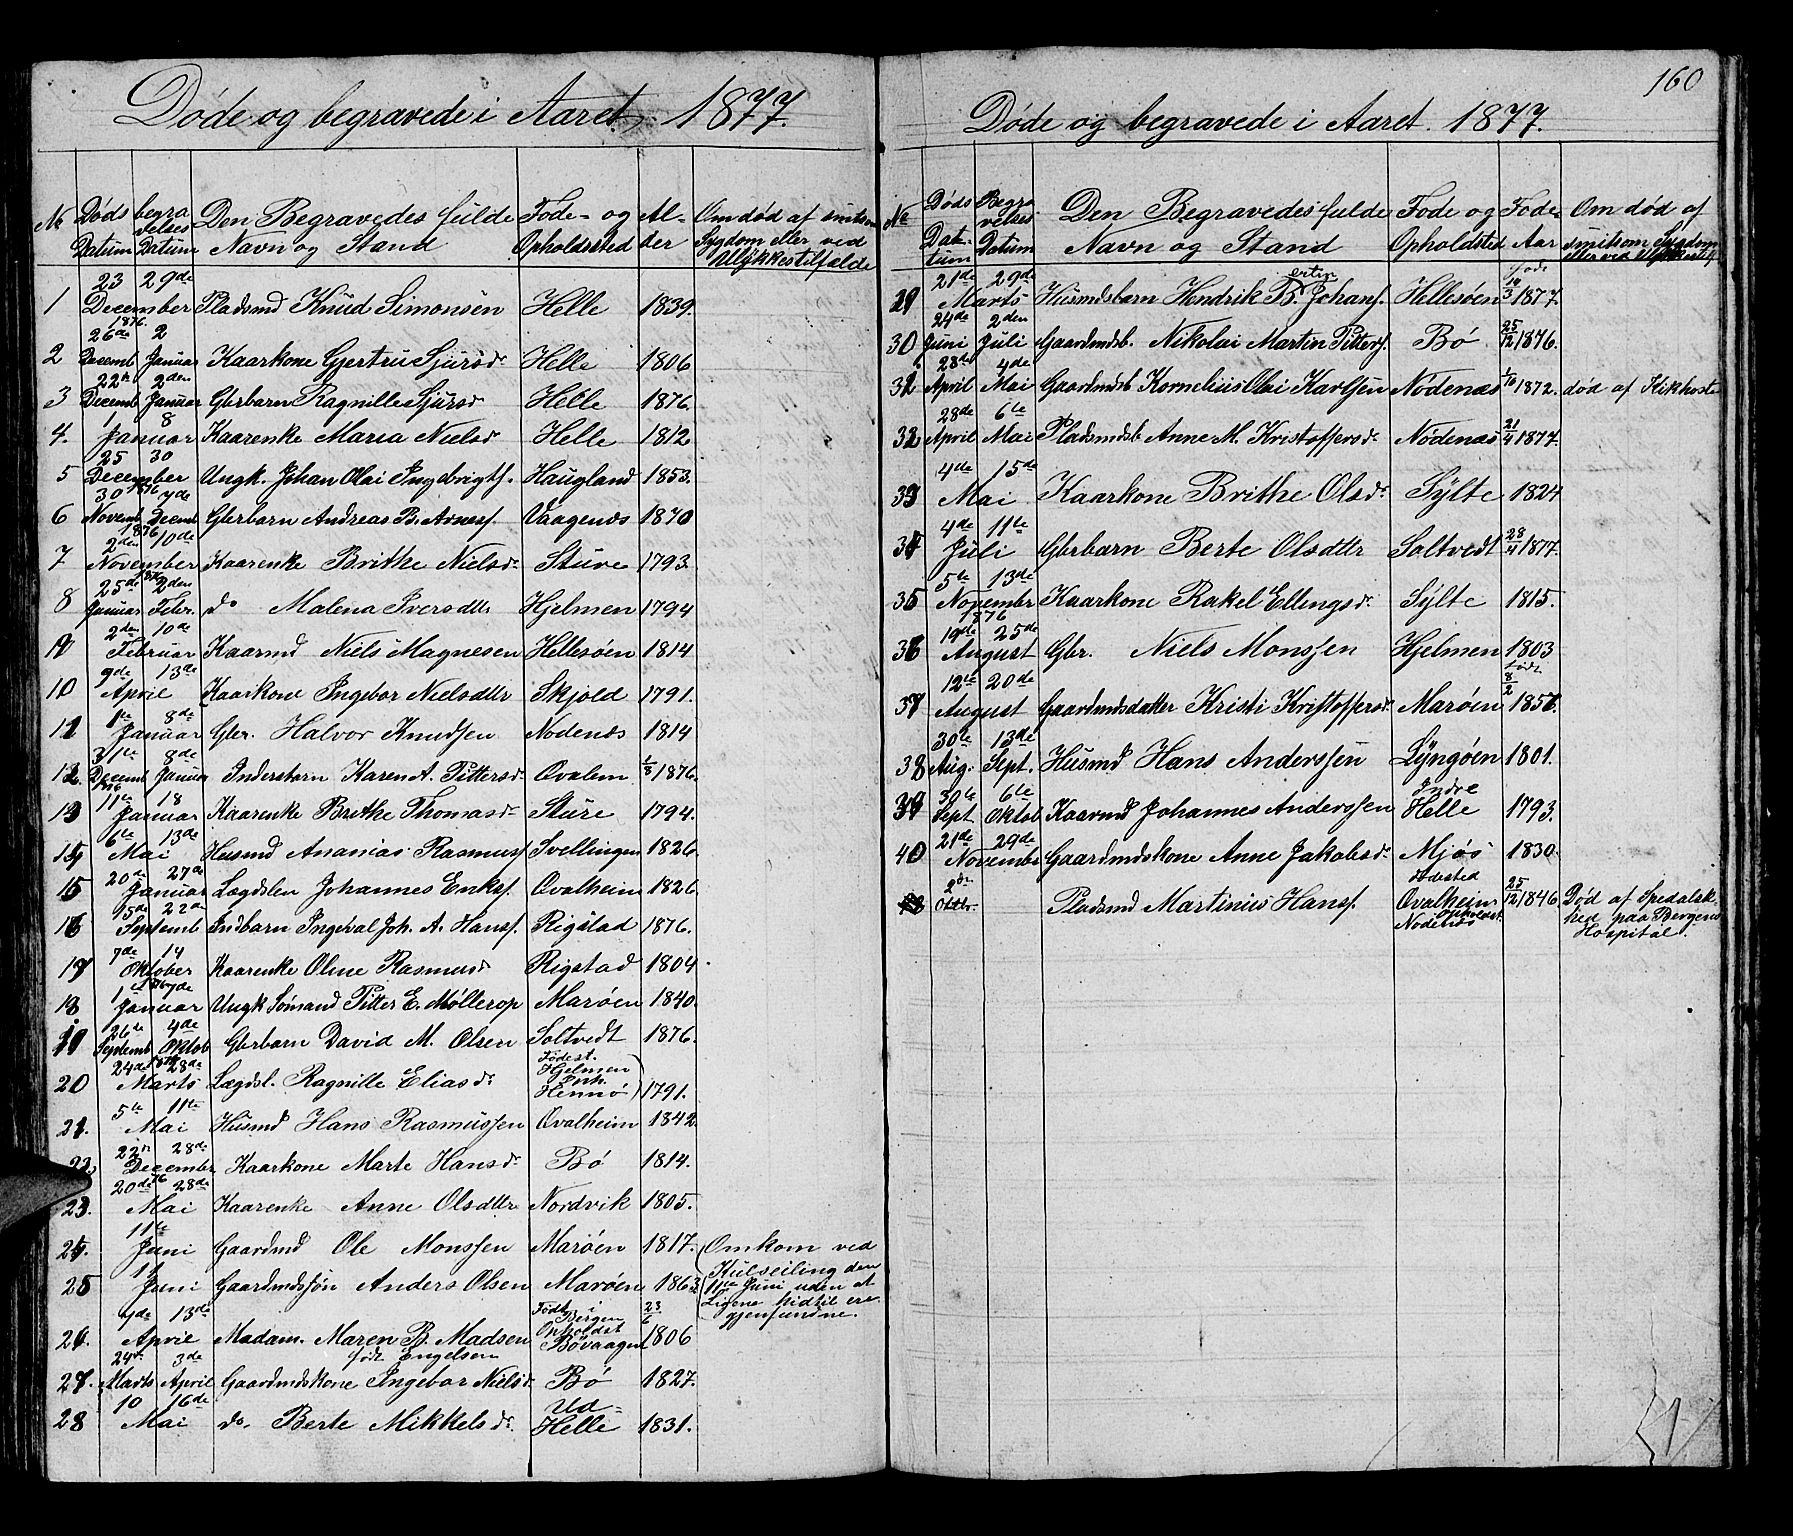 Døde og begravede i Aaret 1877.
№ Døds Datum begravelses Datum Den Begravedes fulde Navn og Stand Føde- og Opholdssted Alder Om død af smitsom Sygdom eller ved Ulykkestilfælde
1 23 December 1876 29de Pladsmd Knud Simonsen Helle 1839.
2 26de Decemb 2 Januar Kaarkone Gjertru Sjursdr Helle 1806
3 22n Decemb 2den Januar Gbrbarn Ragnille Sjursd Helle 1876.
4. 1 8 Januar Kaarenke Maria Nielsd Helle 1812
5 25 30 December 1876 Ungk. Johan Olai Ingebrigts. Haugland 1853.
6 30 Novemb 1876 7de Decemb Gbrbarn Andreas B. Arnesf. Vaagenæs 1870
7 2den 10de November 1876 Kaarenke Brithe Nielsdr Sture 1793.
8 25de Januar 2den Febr. do Malena Iversdtr Hjelmen 1794
9 2den 10de Februar Kaarmd Niels Magnesen Hellesøen 1814
10 9de 13de April Kaarkone Ingebor Nielsdtr Skjold 1791.
11 1te 8de Januar Gbr. Halvor Knudsen Nødenæs 1814
12 31te Decemb 1876 8de Januar Inderstbarn Karen A. Pittersd. Ovalem 1/8 1876.
13 11te 18 Januar Kaarenke Brithe Thomasdr Sture 1794.
14 6te 13de Mai Husmd Ananias Rasmusf Svellingen 1826.
15 20de 27de Januar Lægdslem Johannes Eriksf. Ovalheim 1826
16 15de 22de Septemb Indbarn Ingebal Joh. A. Hansf. Rigstad 1876.
17 7de 14 Oktober 1876 Kaarenke Oline Rasmusdr Rigstad 1804.
18 1 7de Januar Ungk Sømand Pitter E. Møllerop Marøen 1840
19 26de Septemb 4de Oktob 1876 Gbrbarn David M. Olsen Soltvedt 1876.
20 24de 28de Marts Lægdsl. Ragnille Eliasdr Fødest. Hjelmen Oph. Hennø 1791.
21. 5te 11te Mai Husmd Hans Rasmussen Ovalheim 1842.
22. 22n 28de December 76 Kaarkone Marte Hansdr Bø 1814.
23. 20de 28de Mai Kaarenke Anne Olsdtr Nordvik 1805.
24. 11te Juni Gaardmd Ole Monssen Marøen 1817. Omkom ved
25 11 Juni Gaardmdssøn Anders Olsen Marøen 1863 Kulseiling den 11te Juni uden at Ligene hidtil ere gjenfundne.
26. 7de 13de April Madam. Maren B. Madsen født Engelsen Født i Bergen Opholdst Bøvaagen 23/6 1806
27. 24de Marts 3de April Gaardmdskone Ingebor Nielsd. Bø 1827.
28 10 16de Mai do. Berte Mikkelsdr. Ud-Helle 1831.
160
Døde og begravede i Aaret 1877.
№ Døds Datum Begravelses Datum Den Begravedes fulde Navn og Stand Føde og Opholdsted Føde-Aar Om død af smitsom Sygdom eller ved Ulykkestilf
29 21de 29de Marts Husmdsbarn Hendrik B. Johans. Hellesøen født 10/3 1877.
30 24de Juni 2den Juli Gaardmdsb. Nikolai Martin Pittersf. Bø 25/12 1876.
31 28de April 4de Mai Gaardmdsb Kornelius Olai Karlsen Nødenæs 1/10 1872. død af Kikhoste
32 28de April 6te Mai Pladsmdsb. Anne M. Kristoffersdr Nødenæs 21/4 1877.
33 4de 15de Mai Kaarkone Brithe Olsdr Sylte 1824
34 4de 11te Juli Gbrbarn Berte Olsdtr Soltvedt 28/4 1877.
35 5te 13de Novembr 1876 Kaarkone Rakel Ellingsdr Sylte 1815.
36 19de 25de August Gbr. Niels Monssen Hjelmen 1803
37 12te 20de August Gaardmdsdatter Kristi Kristoffersdr Marøen født 8/2 1857.
38 30te Aug. 13de Sept. Husmd Hans Anderssen Lyngøen 1801.
39 30te Sept 6te Oktob Kaarmd Johannes Anderssen Indre Helle 1793.
40 21de 29de Novembr Gaardmdskone Anne Jakobsdr Mjøs 1830.
2de Oktbr. Pladsmd Martinius Hansf. Fødested Ovalheim Opholdst Nødenæs 25/12 1846 Død af Spedalskhed paa Bergens Hospital.